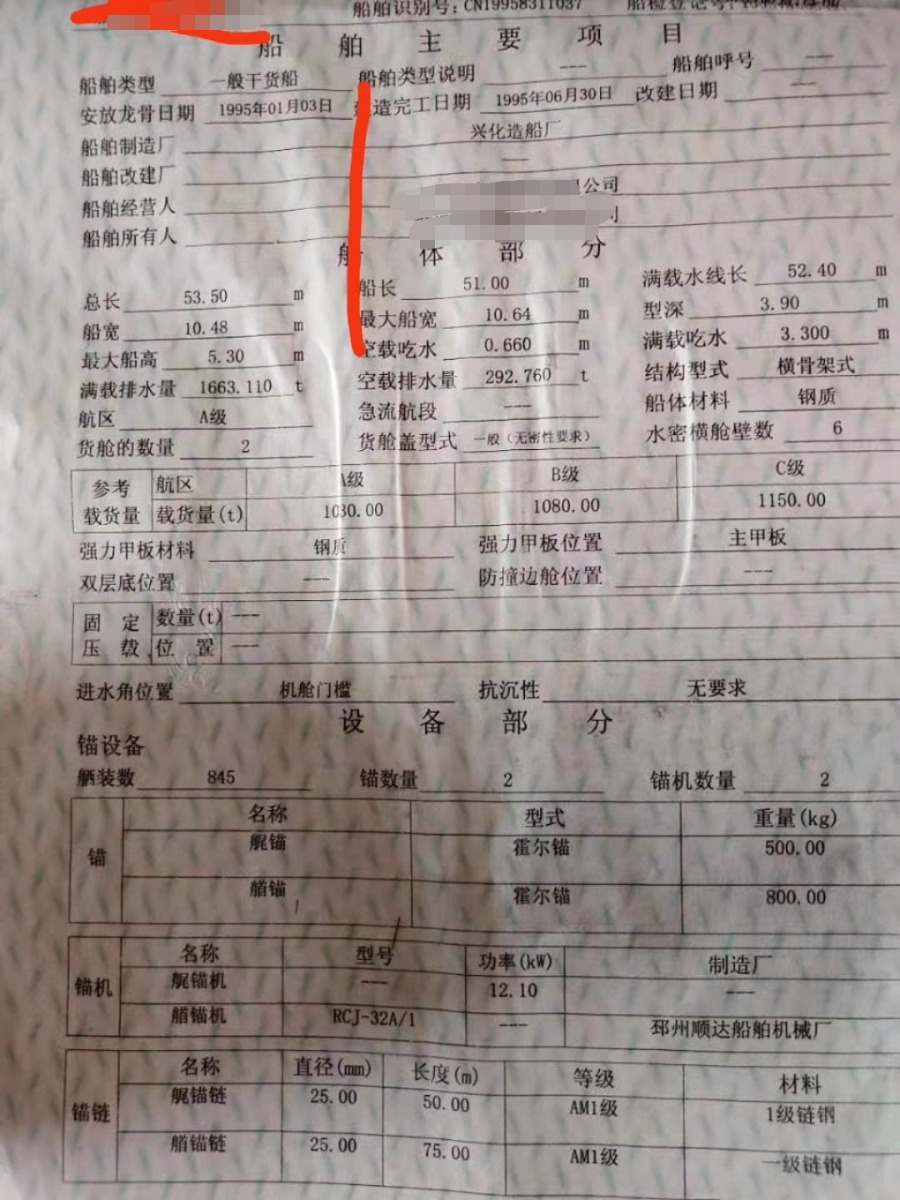 船舶识别号：CN19958311037 船检登记号
船舶主要项目
船舶类型 一般干货船 船舶类型说明 --- 船舶呼号 ---
安放龙骨日期 1995年01月03日 建造完工日期 1995年06月30日 改建日期 ---
船舶制造厂 兴化造船厂
船舶改建厂 ---
船舶经营人 公司
船舶所有人
船体部分
总长 53.50 m 船长 51.00 m 满载水线长 52.40 m
船宽 10.48 m 最大船宽 10.64 m 型深 3.90 m
最大船高 5.30 m 空载吃水 0.660 m 满载吃水 3.300 m
满载排水量 1663.110 t 空载排水量 292.760 t 结构型式 横骨架式
航区 A级 急流航段 --- 船体材料 钢质
货舱的数量 2 货舱盖型式 一般（无密性要求） 水密横舱壁数 6
参考 航区 A级 B级 C级
载货量 载货量(t) 1030.00 1080.00 1150.00
强力甲板材料 钢质 强力甲板位置 主甲板
双层底位置 --- 防撞边舱位置 ---
固定 数量(t) ---
压载 位置 ---
进水角位置 机舱门槛 抗沉性 无要求
设备部分
锚设备
舾装数 845 锚数量 2 锚机数量 2
名称 型式 重量(kg)
锚 艉锚 霍尔锚 500.00
艏锚 霍尔锚 800.00
名称 型号 功率(kW) 制造厂
锚机 艉锚机 --- 12.10 ---
艏锚机 RCJ-32A/1 --- 邳州顺达船舶机械厂
名称 直径(mm) 长度(m) 等级 材料
锚链 艉锚链 25.00 50.00 AM1级 1级链钢
艏锚链 25.00 75.00 AM1级 一级链钢